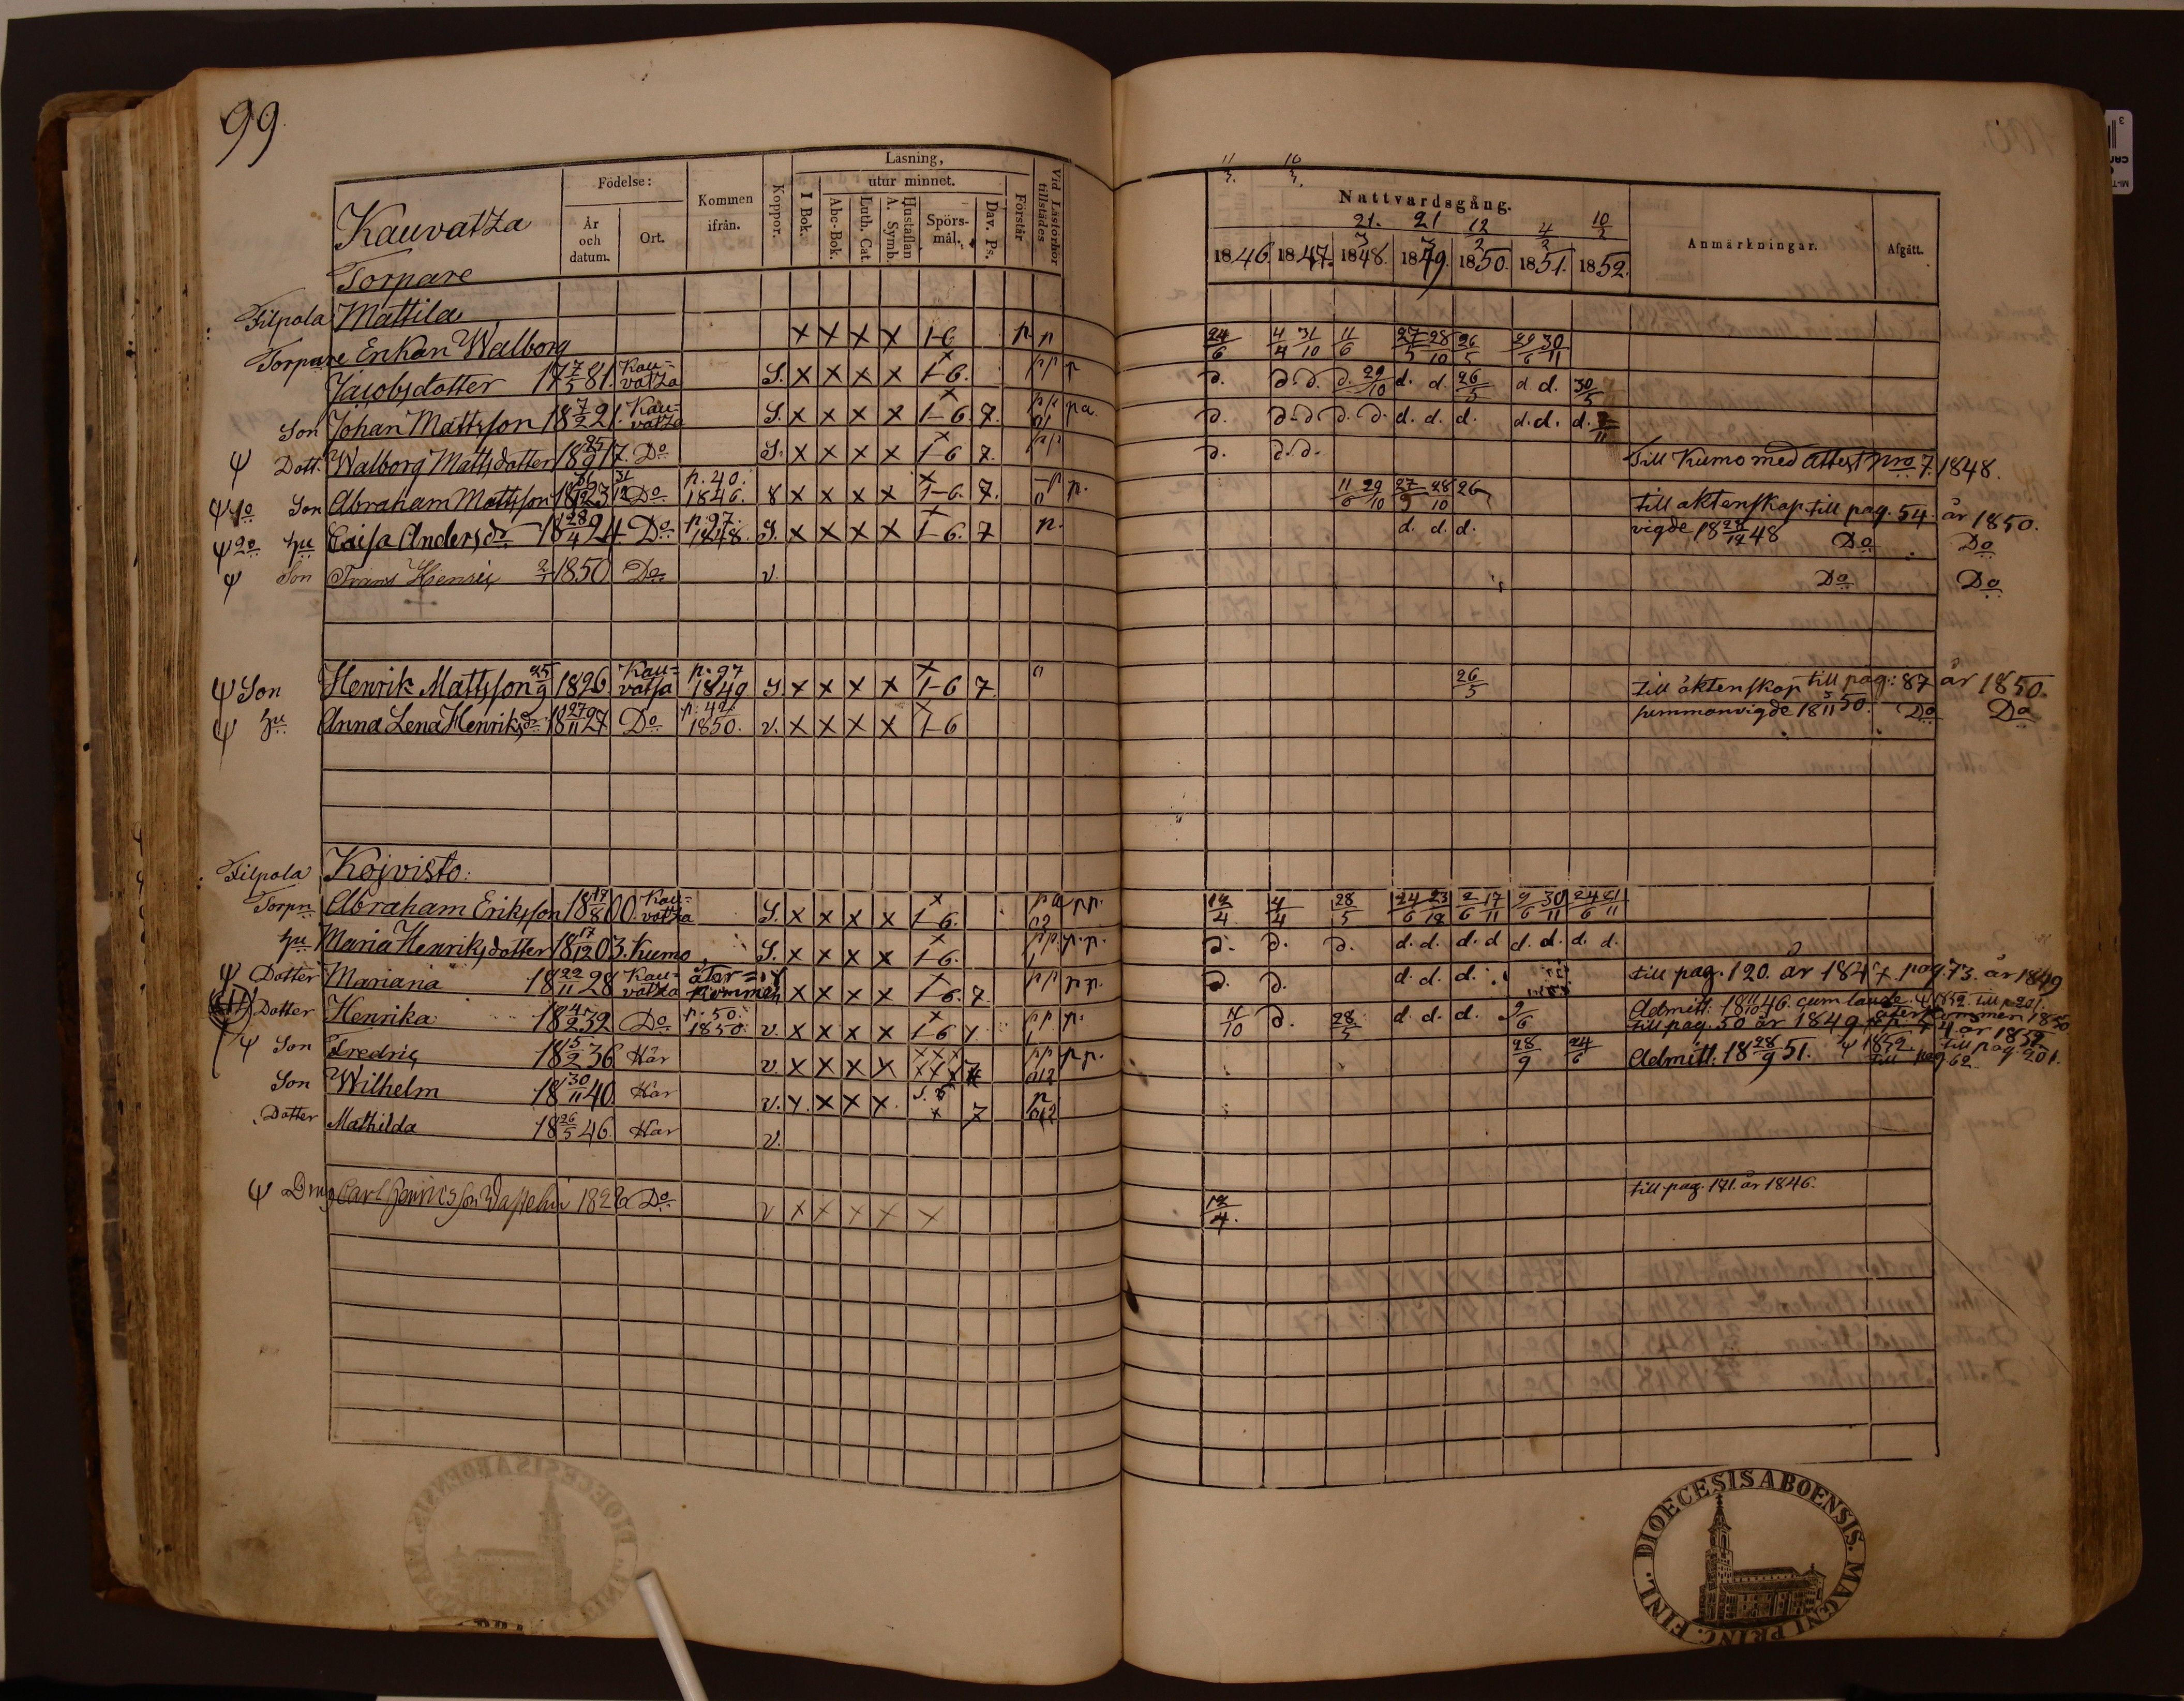 99.
Kauvatza
Torpare
Födelse:
År och datum.
Ort.
Kommen ifrån.
Koppor.
Läsning,
utur minnet.
I Bok.
Abc-Bok.
Luth. Cat.
Hustaflan A. Symb.
Spörs-mål.
Dav. Ps.
Förstår
Vid Läsförhör tillstädes
11/3. 16/3.
Nattvardsgång.
21/3 21/3 12/2 4/2 10/2
1846. 1847. 1848. 1849. 1850. 1851. 1852.
Anmärkningar.
Afgått.
Filpola Mattila
Torpare Enkan Walborg × × × × 1-6 p p 24/6 4/4 31/10 11/6 27/5 28/10 26/5 29/6 30/11
Jacobsdotter 17 7/5 81. Kau=vatza S. × × × × 1-6. pp p d. d. d. d. 29/10 d. d. 26/5 d. d. 30/5
Son Johan Mattsson 18 7/2 21. Kau=vatza S. × × × × 1-6 7. pa. d. d. d. d. d. d. d. d. d. d. d.
Ψ Dott. Walborg Mattsdotter 18 25/9 17. Do S. × × × × 1-6 7. pp d. d. d. Till Kumo med attest Nro 7. 1848.
Ψ 1o Son Abraham Mattsson 1823 Do p. 40. 1846. × × × × 1-6. 7. p. 11/6 29/10 27/9 28/10 26 till äktenskap till pag. 54. år 1850.
Ψ 2o hu Caisa Andersdr 18 28/4 24 Do p. 97. 1848. S. × × × × 1-6. 7 p. d. d. d. vigde 1848 Do Do
Ψ Son Frans Henric 1850 Do v. Do Do
Ψ Son Henrik Mattsson 25/9 1826 Kau=vatsa p. 97 1849 S. × × × × 1-6 7. 26/5 till äktenskap till pag: 87 år 1850.
Ψ hu Anna Lena Henriksdr 18 27/11 27 Do 1850. v. × × × × 1-6 sammanvigde 18 3/11 50. Do Do
Filpola Koivisto:
Torpn Abraham Eriksson 1800. Kau=vatza S. × × × × 1-6. pp. 12/4 4/4 28/5 24/6 23/12 2/6 17/11 9/6 30/11 24/6 21/11
hu Maria Henriksdotter 18 17/12 03. Kumo S. × × × × 1-6. p.p. d. d. d. d. d. d. d d. d. d. d.
Ψ Dotter Mariana 18 22/11 28 Kau=vatza åter=kommen × × × × 1-6. 7. pp pp. d. d. d. d. d. till pag. 120. år 1847 pag. 73. år 1849
Dotter Henrika 18 4/2 32 Do p. 50. 1850. v. × × × × 1-6 7. pp p. 11/10 d. 28/5 d. d. d. 9/6 Admitt: 18 11/10 46. cum laude. Ψ 1852. till p 201.
till pag. 50 år 1849 återkommen 1850
Ψ Son Fredric 18 5/2 36 Här v × × × × 7 pp pp. 28/9 24/6 Admitt: 18 28/9 51. Ψ 1852. till pag. 201.
Son Wilhelm 18 30/11 40. Här v. × × × × 7
Dotter Mathilda 18 26/5 46. Här v.
Ψ Dreng Carl Henricsson 182 Do v × × × × × 12/4. till pag. 171. år 1846.
DIOECESIS ABOENSIS. MAGNI PRINC. FINL.